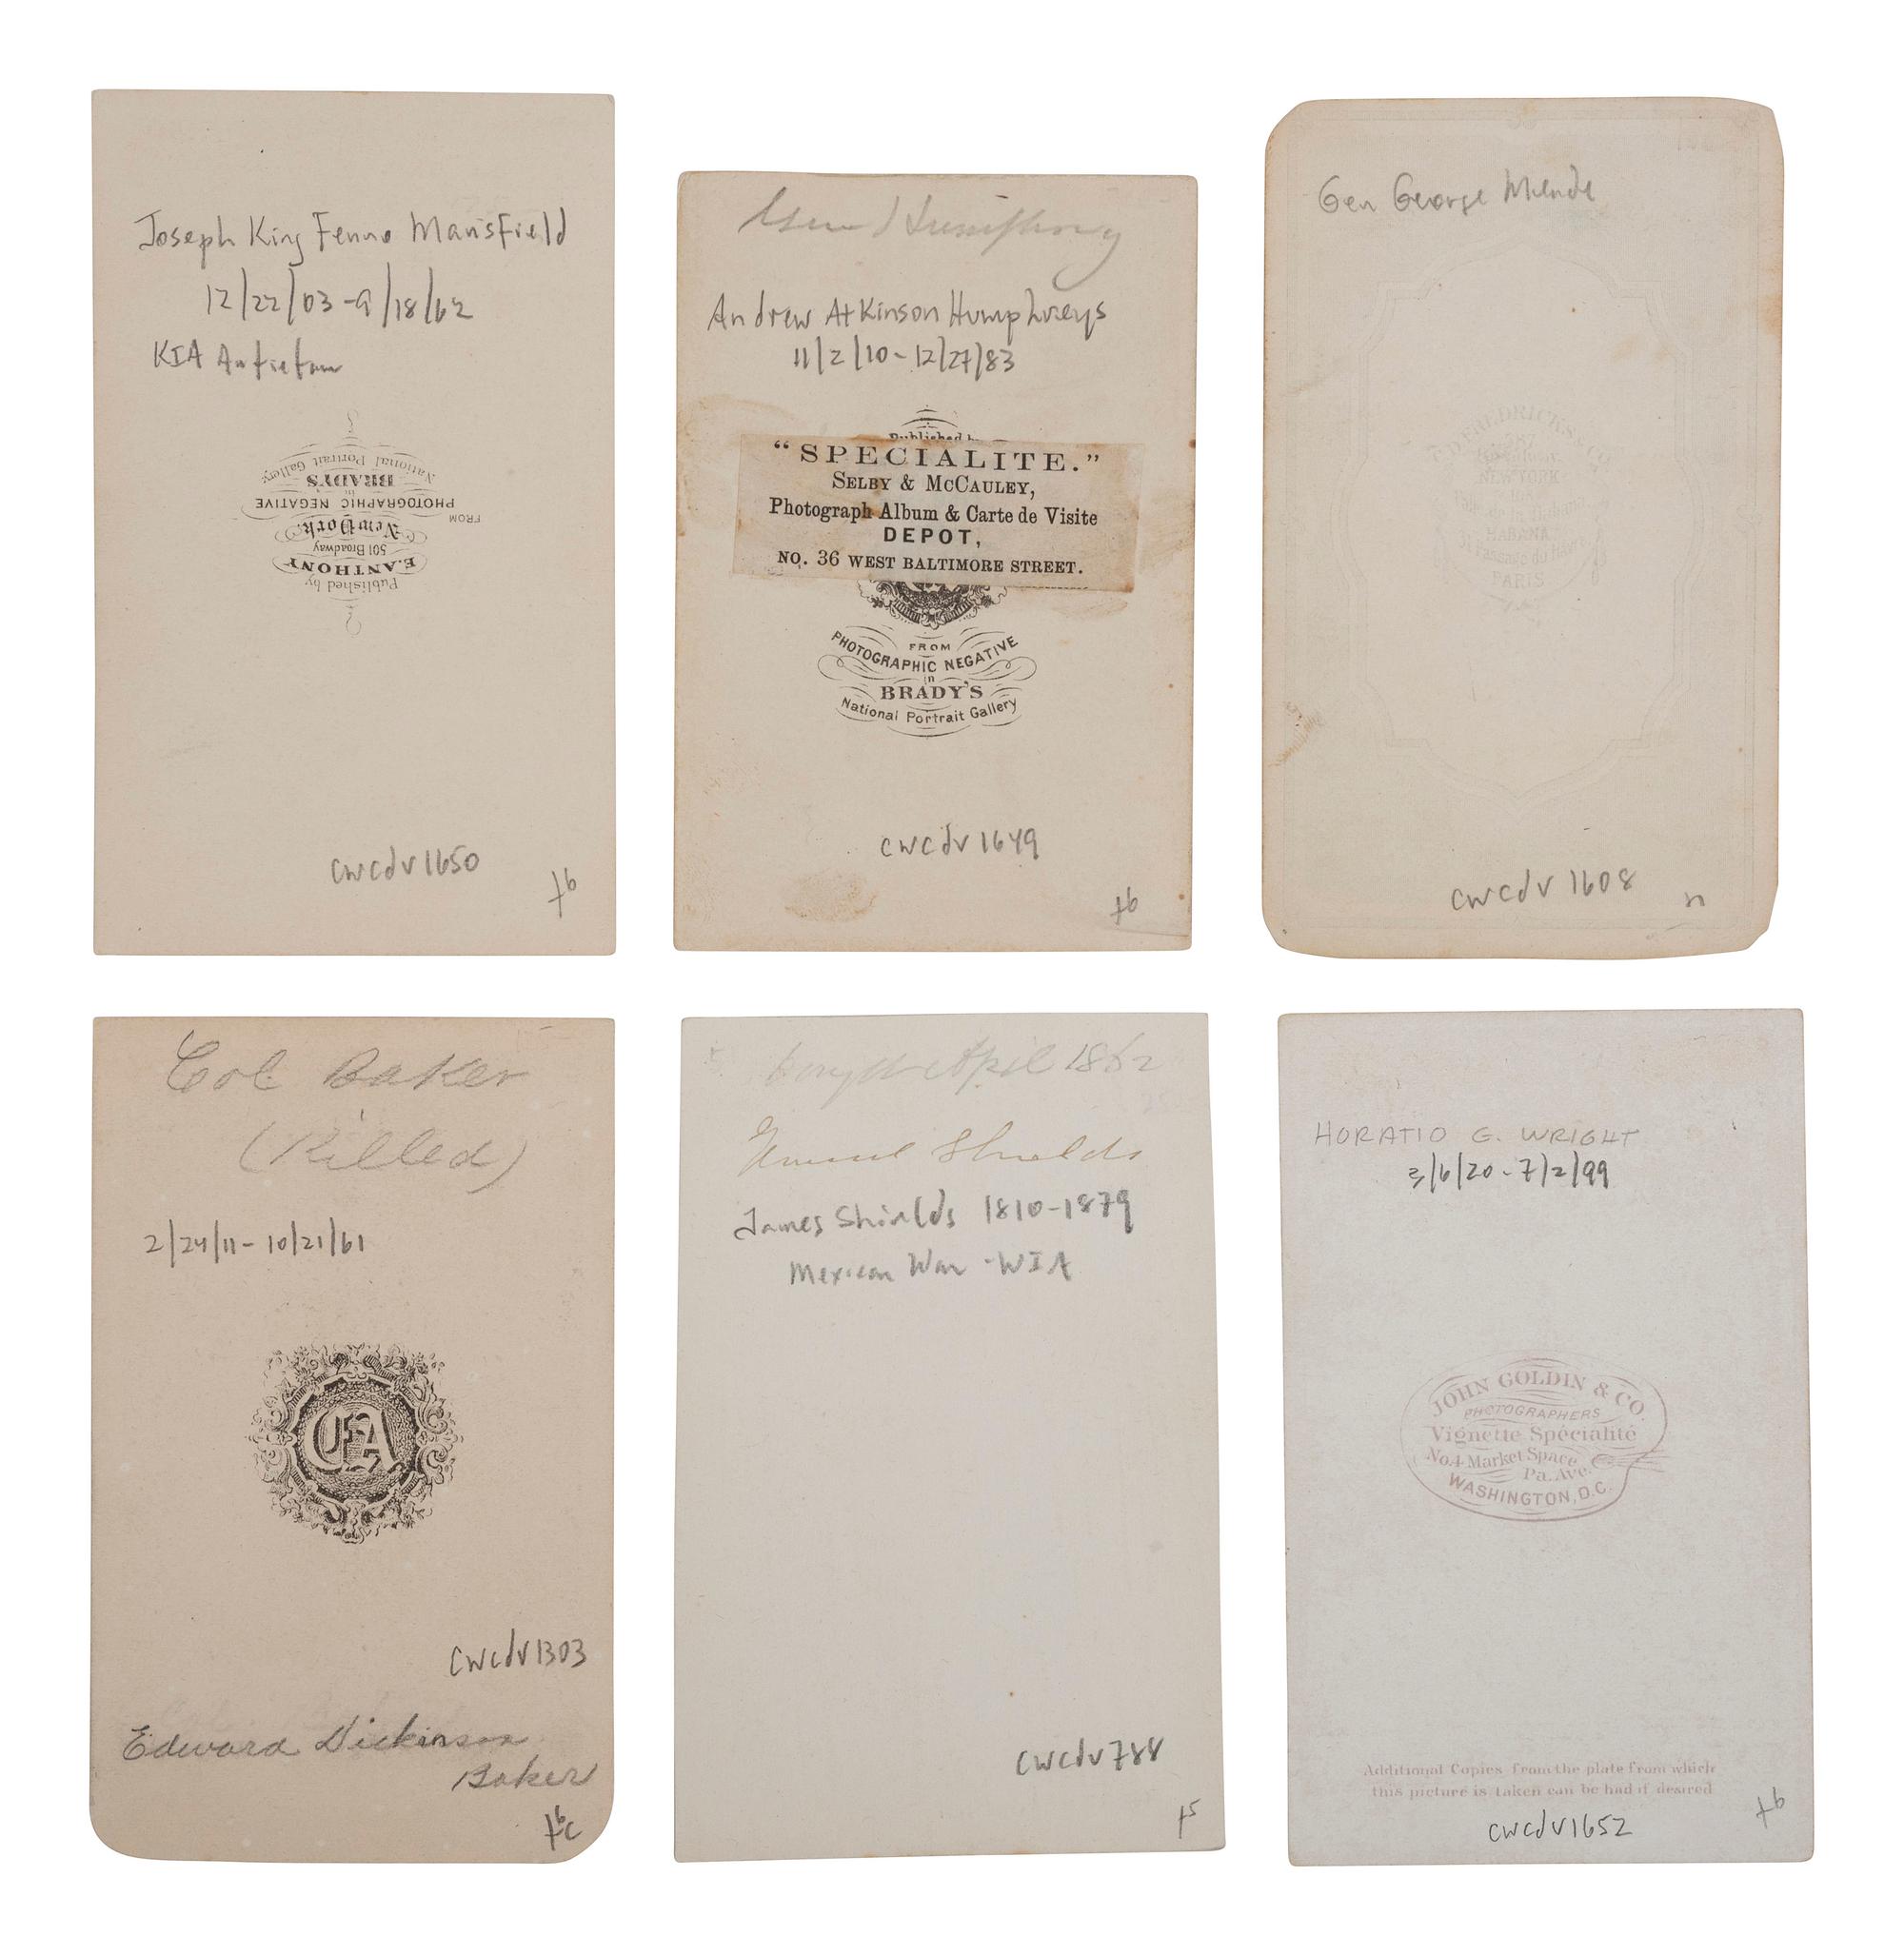 Joseph King Fenno Mansfield
12/22/03-9/18/62
KIA Antietam
Published by
E. ANTHONY
501 Broadway
New York
FROM
PHOTOGRAPHIC NEGATIVE
in
BRADY'S
National Portrait Gallery
cwcdv1650
t6
Andrew Atkinson Humphreys
11/2/10-12/27/83
Published by
"SPECIALITE."
SELBY & MCCAULEY,
Photograph Album & Carte de Visite
DEPOT,
NO. 36 WEST BALTIMORE STREET.
FROM
PHOTOGRAPHIC NEGATIVE
in
BRADY'S
National Portrait Gallery
cwcdv1649
t6
Gen George Meade
FREDRICKS & CO
NEW YORK
HABANA
PARIS
cwcdv1608
n
Col Baker
(Killed)
2/24/11-10/21/61
EA
cwcdv1303
Edward Dickinson
Baker
April 1862
General Shields
James Shields 1810-1879
Mexican War - WIA
cwcdv788
t5
HORATIO G. WRIGHT
3/6/20-7/2/99
JOHN GOLDIN & CO.
PHOTOGRAPHERS
Vignette Spécialité
No.4 Market Space
Pa. Ave.
WASHINGTON, D.C.
Additional Copies from the plate from which
this picture is taken can be had if desired
cwcdv1652
t6